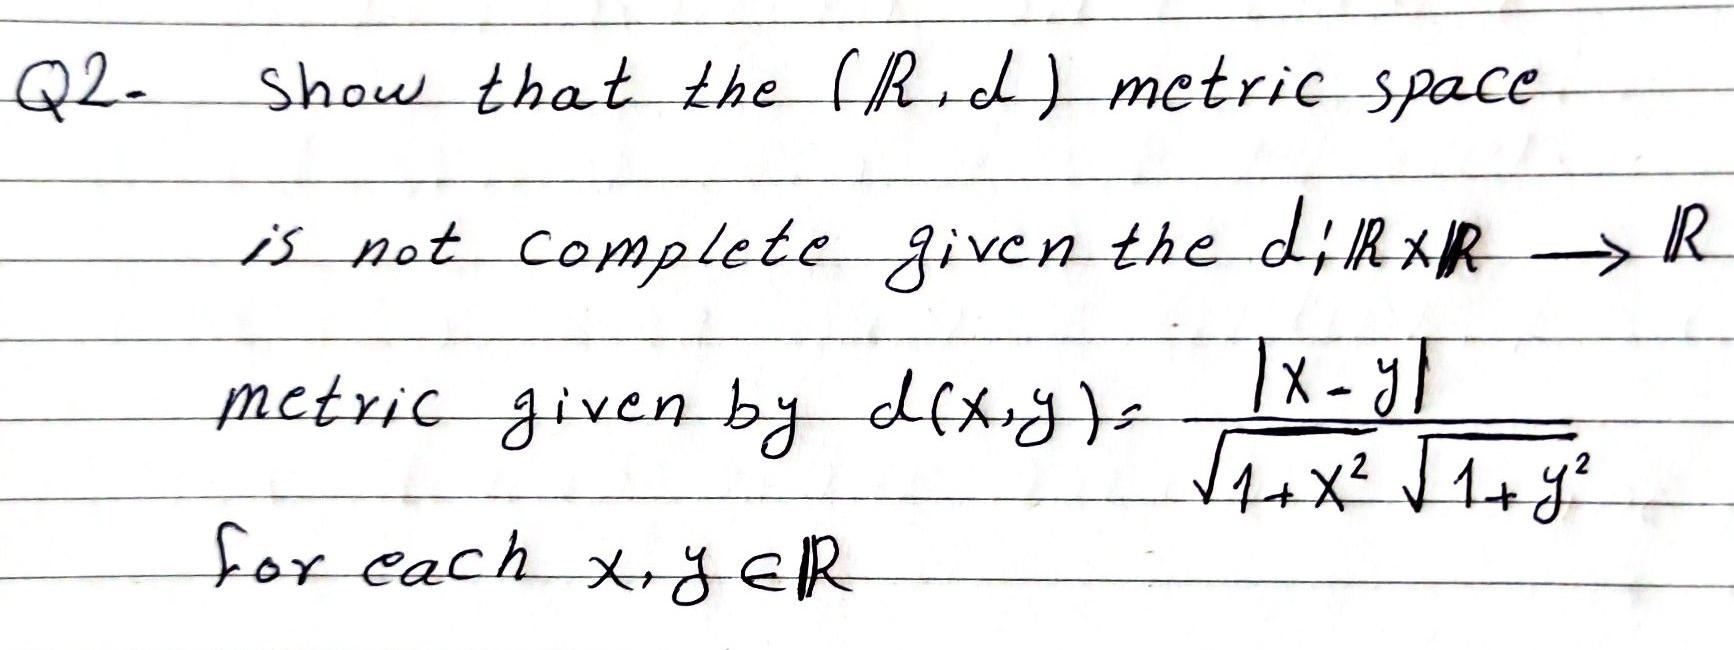 Q2- show that the (ℝ,d) metric space
is not complete given the d; ℝ×ℝ → ℝ
metric given by d(x,y) = |x-y| / √1+x² √1+y²
for each x,y ∈ ℝ